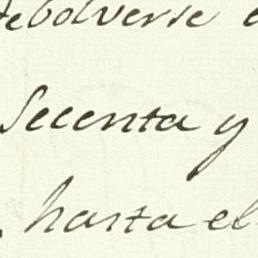 debolverse
Secenta y
hasta el